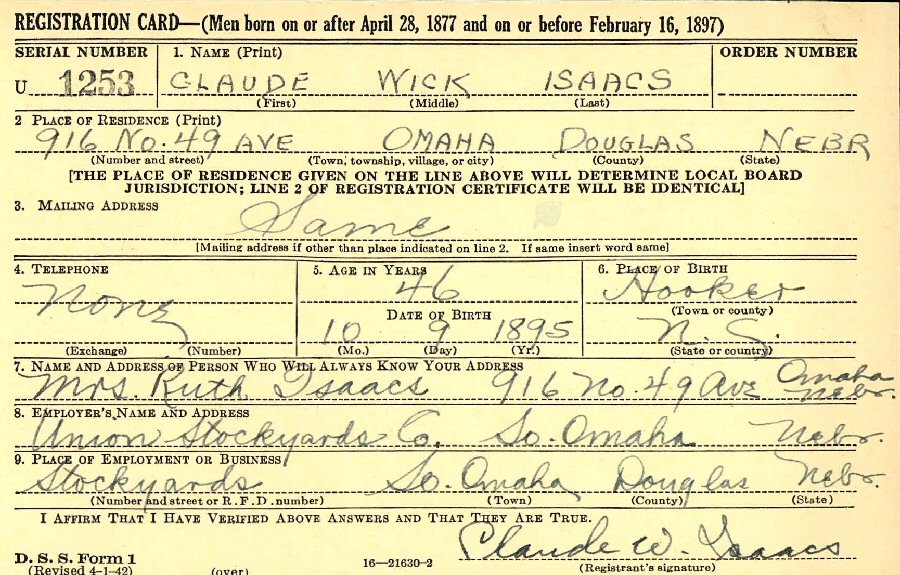 REGISTRATION CARD—(Men born on or after April 28, 1877 and on or before February 16, 1897)
SERIAL NUMBER 1. NAME (Print) ORDER NUMBER
U 1253 CLAUDE WICK ISAACS
(First) (Middle) (Last)
2 PLACE OF RESIDENCE (Print)
916 NO. 49 AVE OMAHA DOUGLAS NEBR
(Number and street) (Town, township, village, or city) (County) (State)
[THE PLACE OF RESIDENCE GIVEN ON THE LINE ABOVE WILL DETERMINE LOCAL BOARD
JURISDICTION; LINE 2 OF REGISTRATION CERTIFICATE WILL BE IDENTICAL]
3. MAILING ADDRESS
Same
[Mailing address if other than place indicated on line 2. If same insert word same]
4. TELEPHONE 5. AGE IN YEARS 6. PLACE OF BIRTH
None 46 Hooker
DATE OF BIRTH (Town or county)
10 9 1895 N. S.
(Exchange) (Number) (Mo.) (Day) (Yr.) (State or country)
7. NAME AND ADDRESS OF PERSON WHO WILL ALWAYS KNOW YOUR ADDRESS
Mrs. Ruth Isaacs 916 No. 49 Ave Omaha Nebr.
8. EMPLOYER'S NAME AND ADDRESS
Union Stockyards Co. So. Omaha Nebr.
9. PLACE OF EMPLOYMENT OR BUSINESS
Stockyards So. Omaha Douglas Nebr.
(Number and street or R. F. D. number) (Town) (County) (State)
I AFFIRM THAT I HAVE VERIFIED ABOVE ANSWERS AND THAT THEY ARE TRUE.
Claude W. Isaacs
D. S. S. Form 1 16—21630-2 (Registrant's signature)
(Revised 4-1-42) (over)